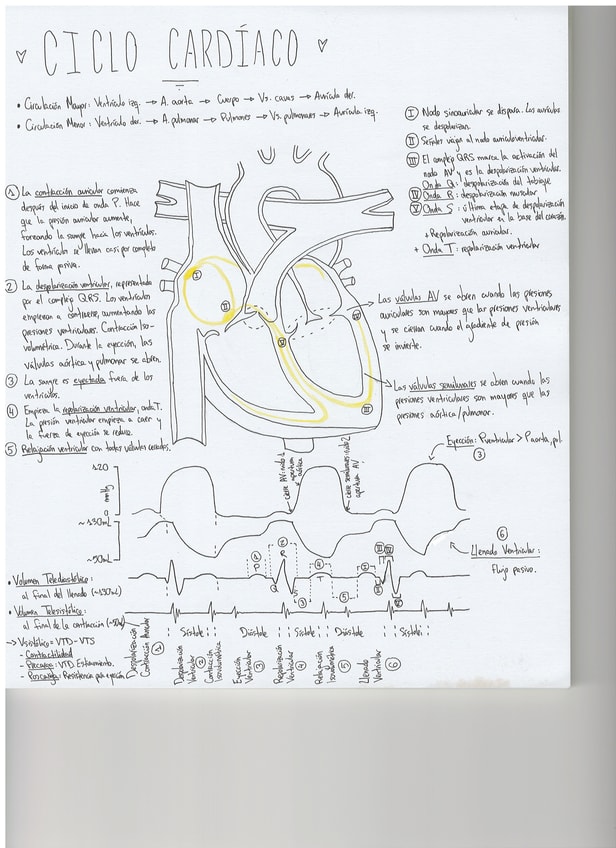 CICLO CARDÍACO
• Circulación Mayor: Ventrículo izq. → A. aorta → Cuerpo → Vs. cavas → Aurícula der.
• Circulación Menor: Ventrículo der. → A. pulmonar → Pulmones → Vs. pulmonares → Aurícula izq.
① La contracción auricular comienza
después del inicio de onda P. Hace
que la presión auricular aumente,
forzando la sangre hacia los ventrículos.
Los ventrículos se llevan casi por completo
de forma pasiva.
② La despolarización ventricular, representada
por el complejo QRS. Los ventrículos
empiezan a contraerse, aumentando las
presiones ventriculares. Contracción Iso-
volumétrica. Durante la eyección, las
válvulas aórtica y pulmonar se abren.
③ La sangre es eyectada fuera de los
ventrículos.
④ Empieza la repolarización ventricular, onda T.
La presión ventricular empieza a caer y
la fuerza de eyección se reduce.
⑤ Relajación ventricular con todas válvulas cerradas.
Ⓘ Nodo sinoauricular se dispara. Las aurículas
se despolarizan.
Ⅱ Señales viaja al nodo auriculoventricular.
Ⅲ El complejo QRS marca la activación del
nodo AV y es la despolarización ventricular.
Onda Q: despolarización del tabique
Ⅳ Onda R: despolarización muscular
Ⅴ Onda S: última etapa de despolarización
ventricular en la base del corazón.
+ Repolarización auricular.
+ Onda T: repolarización ventricular
I
II
V
IV
III
Las válvulas AV se abren cuando las presiones
auriculares son mayores que las presiones ventriculares
y se cierran cuando el gradiente de presión
se invierte.
Las válvulas semilunares se abren cuando las
presiones ventriculares son mayores que las
presiones aórtica/pulmonar.
Eyección: Pventricular > Paorta, pul.
③
cierre AV: ruido 1
apertura aórtica
cierre semilunares: ruido 2
apertura AV
120
mmHg
0
~130mL
~50mL
⑥
Llenado Ventricular:
Flujo pasivo.
① P ② R Q S ③ ④ T ⑤
• Volumen Telediastólico:
al final del llenado (~130mL)
• Volumen Telesistólico:
al final de la contracción (~50mL)
→ Vsistólico = VTD - VTS
- Contractilidad
- Precarga: VTD. Estiramiento.
- Poscarga: Resistencia por eyección
Sístole Diástole Sístole Diástole Sístole
Despolarización
Contracción Auricular ①
Despolarización
Ventricular ②
Contracción
Isovolumétrica
Eyección
Ventricular ③
Repolarización
Ventricular ④
Relajación
Isovolumétrica ⑤
Llenado
Ventricular ⑥